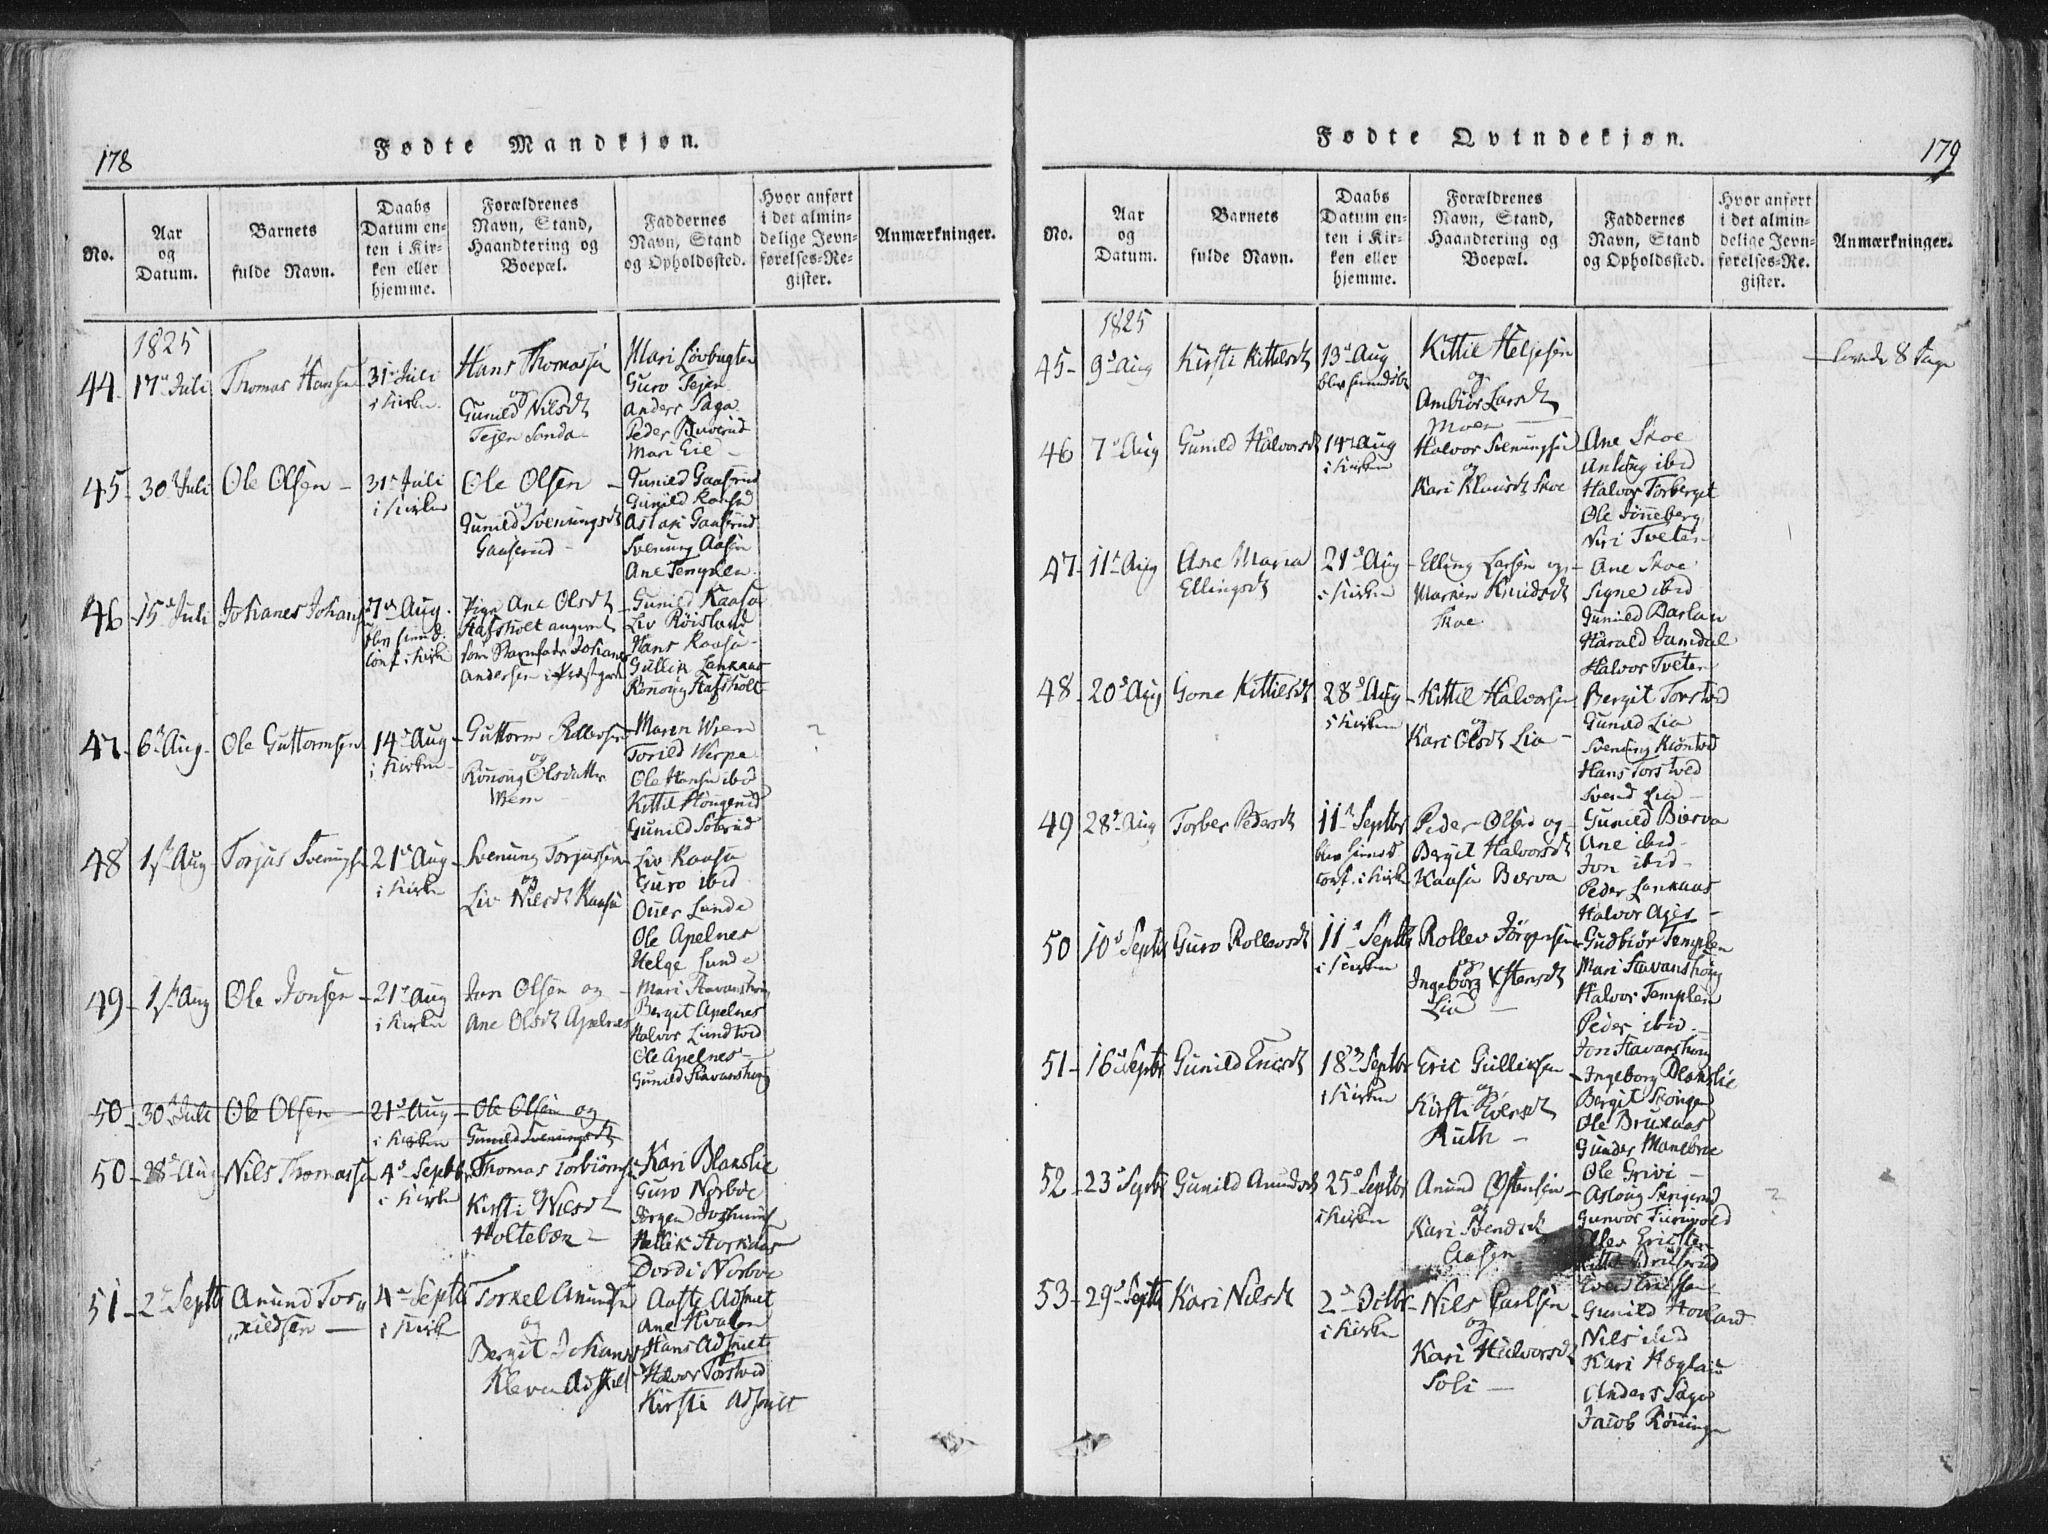 178
Fødte Mandkjøn.
No.
Aar
og
Datum.
Barnets
fulde Navn.
Daabs
Datum en-
ten i Kir-
ken eller
hjemme.
Forældrenes
Navn, Stand,
Haandtering og
Boepæl.
Faddernes
Navn, Stand
og Opholdssted.
Hvor anført
i det almin-
delige Jevn-
førelses-Re-
gister.
Anmærkninger.
1825
44. 17 Juli Thomas Hansen
31 Juli
i Kirken
Hans Thomassen
og
Gunild Nilsdt
Tejen Sanda
Mari Løvbugten
Guro Tejen
Anders Saga
Peder
Mari Eie
45 - 30 Juli Ole Olsen -
31 Juli
i Kirken
Ole Olsen -
og
Gunild Svenungsdt
Gaaserud -
Gunild Gaaserud
Gunild Kaasa
Aslari Gaaserud
Svenung Aasen
Ane Templen
46 - 15 Juli Johanes Johans
7 Aug.
blev hiemd.
conf. i Kirk
Pige Ane Olsdt
Hafsholt angivet
som Barnefader Johanes
Andersen i Præstgaard
Gunild Kaasa
Liv Røisland
Hans Kaasa
Gullik Lanaas
Rönoug Hafsholt
47 - 6 Aug. Ole Guttormsen
14 Aug
i Kirken
Guttorm Rollevsen
og
Rönoug Olsdatter
Wrem
Maren Wrem
Torild Verpe
Ole Hansen ibid
Kittil Hougerud
Gunild Soterud
?
48 1 Aug Torjus Svenungsen
21 Aug
i Kirken
Svenung Torjussen
og
Liv Nilsdt Kaasa
Liv Kaasa
Guro ibid
Over Lunde
Ole Apelnes
Helge Lunde
49 - 1 Aug Ole Jonsen
21 Aug
i Kirken
Jon Olsen og
Ane Olsdt Apelnes
Mari Stavanshoug
Bergit Apelnes
Halvor Lundtvid
Ole Apelnes -
Gunild Stavanshoug
50 - 30 Juli Ole Olsen - 21 Aug
i Kirken
Ole Olsen og
Gunild Svenungsdt
50 - 28 Aug Nils Thomassen
4 Septbr
i Kirken
Thomas Torbiörns
og
Kirsti Nilsdt
Holtebæn -
Kari Blakslie
Guro Norboe
Jörgen
Hellik Storkaas
Dordi Norboe
51 - 2 Septbr Anund Tor-
kildsen -
4 Septbr
i Kirk
Torkel Anundsen
og
Bergit Johans
Kleven
Aaste Adsuet
Ane Hvalen
Hans Adsuet
Halvor Torstvid
Kirsti Adsuet
179
Fødte Qvindekjøn.
No.
Aar
og
Datum.
Barnets
fulde Navn.
Daabs
Datum en-
ten i Kir-
ken eller
hjemme.
Forældrenes
Navn, Stand,
Haandtering og
Boepæl.
Faddernes
Navn, Stand
og Opholdssted.
Hvor anført
i det almin-
delige Jevn-
førelses-Re-
gister.
Anmærkninger.
1825
45 - 9 Aug Kirsti Kittilsdt
13 Aug
blev hiemdøbt
Kittil Heljesen
og
Ambiör Larsdt
Moen
levede 8 Dage
46 7 Aug Gunild Halvorsdt
14 Aug
i Kirken
Halvor Svenungsen
og
Kari Knudsdt Skoe
Ane Skoe
Anlaug ibid
Halvor Torberget
Ole Jönneberg
Niri Tveten
47 - 11 Aug Ane Maria
Ellingsdt
21 Aug
i Kirken
Elling Larsen og
Marken Knudsdt
Skoe
Ane Skoe
Signe ibid
Gunild Barlau
Harald Jamdal
Halvor Tveten
48 - 20 Aug Gone Kittilsdt
28 Aug
i Kirken
Kittil Halvorsen
og
Kari Olsdt Lia -
Bergit Torstvid
Gunild Lia
Svenung Kiöntvid
Hans Torstved
Svend Lia -
49 28 Aug Torber Pedersdt
11 Septbr
blev hiemd
conf. i Kirken
Peder Olsen og
Bergit Halvorsdt
Kaasa Bierva
Gunild Bierva
Ane ibid -
Jon ibid -
Peder Lanaas
Halvor Ajer -
50 10 Septbr Guro Rollevsdt
11 Septbr
i Kirken
Rollev Jörgensen
og
Ingeborg Østensdt
Lia -
Gudbiör Templen
Mari Stavanshoug
Halvor Templen
Peder ibid -
Jon Stavanshoug
51 - 16 Septbr Gunild Ericsdt
18 Septbr
i Kirken
Eric Gulliksen
og
Kirsti Iversdt
Ruth -
Ingeborg Blakslie
Bergit Skougen
Ole Brukaas
Gunder Maneboe
Ole Grivi -
52 - 23 Septbr Gunild Anundsdt
25 Septbr
i Kirken
Anund Østensen
og
Kari Svendsdt
Aasen
Aslaug
Gunvor
Kittil
Svend Ericssen
?
53 - 29 Septbr Kari Nilsdt
2 Octbr
i Kirken
Nils Carlsen
og
Kari Halvorsdt
Soli -
Gunild Hovland
Nils ibid
Kari Heglair
Anders Saga
Jacob Röninge